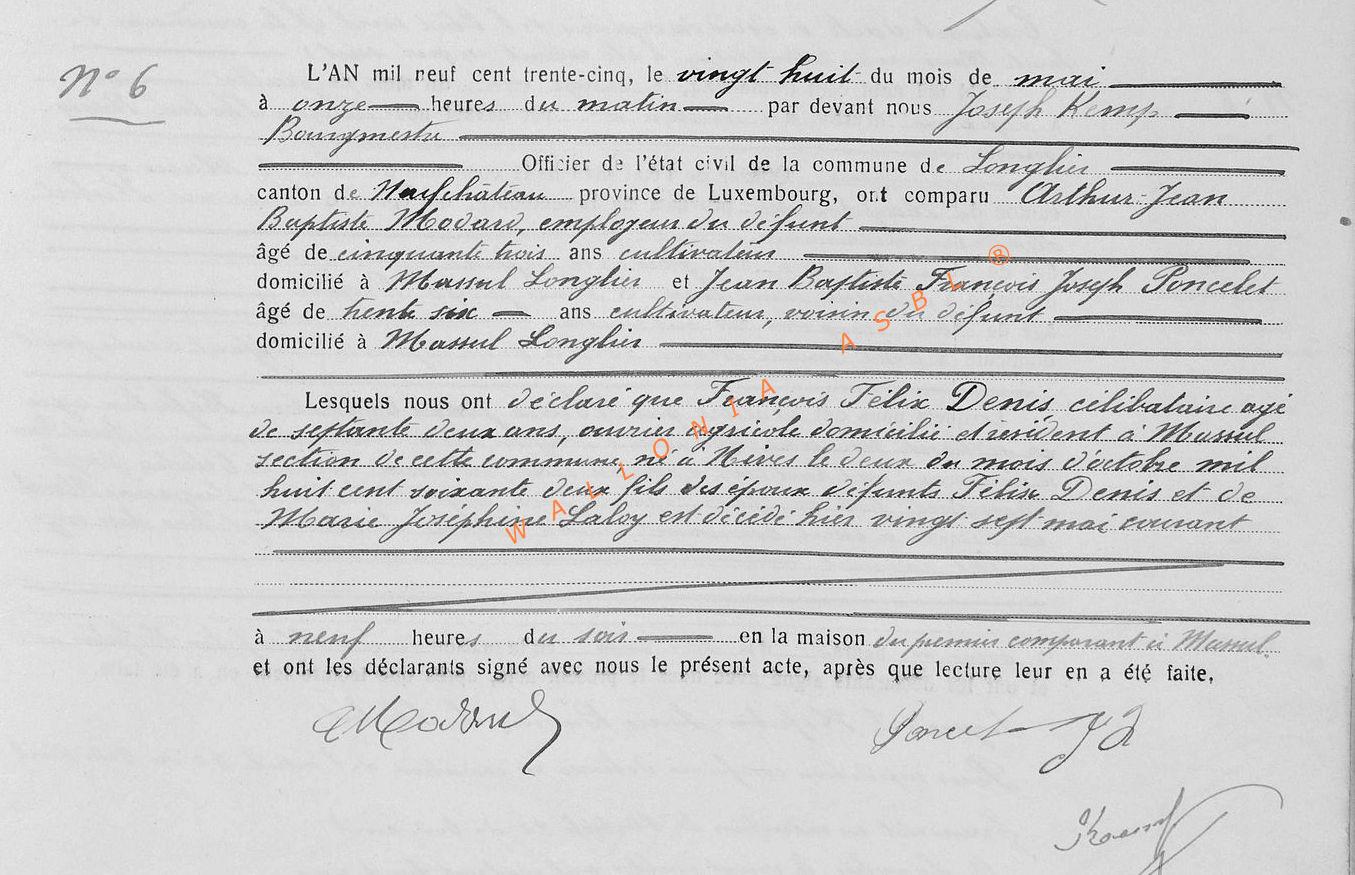 N° 6
L'AN mil neuf cent trente-cinq, le vingt huit du mois de mai
à onze heures du matin par devant nous Joseph Kemp
Bourgmestre
Officier de l'état civil de la commune de Longlier
canton de Neufchâteau province de Luxembourg, ont comparu Arthur Jean
Baptiste Modard, employeur du défunt
âgé de cinquante trois ans cultivateur
domicilié à Massul Longlier et Jean Baptiste François Joseph Poncelet
âgé de trente six ans cultivateur, voisin du défunt
domicilié à Massul Longlier
Lesquels nous ont déclaré que François Félix Denis célibataire agé
de septante deux ans, ouvrier agricole domicilié et résident à Massul
section de cette commune, né à Nives le deux du mois d'octobre mil
huit cent soixante deux fils des époux défunts Félix Denis et de
Marie Joséphine Laloy est décédé hier vingt sept mai courant
à neuf heures du soir en la maison du premier comparant à Massul.
et ont les déclarants signé avec nous le présent acte, après que lecture leur en a été faite.
WALLONIA ASBL ®